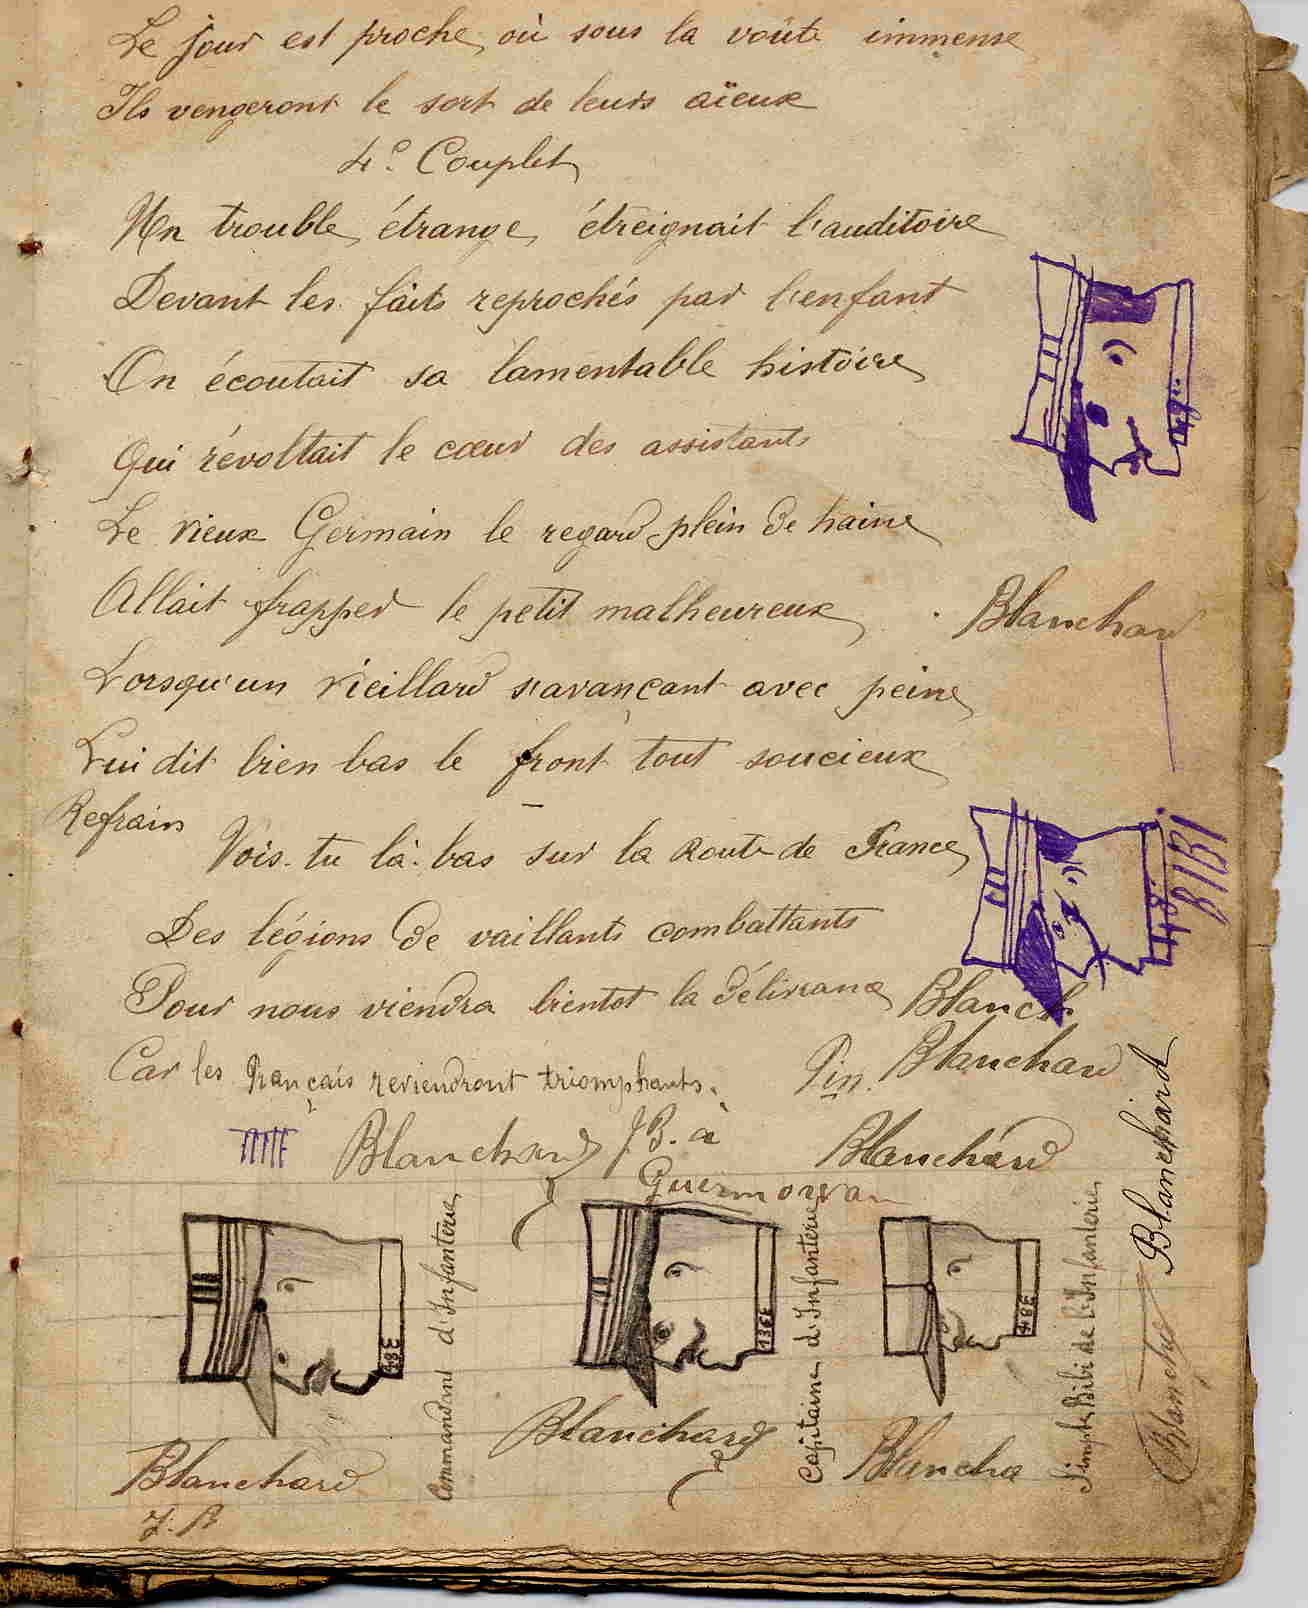 Le jour est proche, où sous la voûte immense
Ils vengeront le sort de leurs aïeux
4e. Couplet
Un trouble étrange, étreignait l'auditoire
Devant les faits reprochés par l'enfant
On écoutait sa lamentable histoire
Qui révoltait le cœur des assistants
Le vieux Germain le regard plein de haine
Allait frapper le petit malheureux
Blanchar
Lorsqu'un vieillard s'avançant avec peine
Lui dit bien bas le front tout soucieux
Refrain
Vois-tu là-bas sur la Route de France
Des légions de vaillants combattants
BIBI
48e
Pour nous viendra bientot la délivrance
Blanch
Car les Français reviendront triomphants.
Fin.
Blanchard
Blanchard J B. à
Guermorvan
Blanchard
Blanchard
48E
Commandant d'Infanterie
136E
Capitaine d'Infanterie
48E
Simple Bibi de l'Infanterie
Blanchard
J. B
Blanchard
Blancha